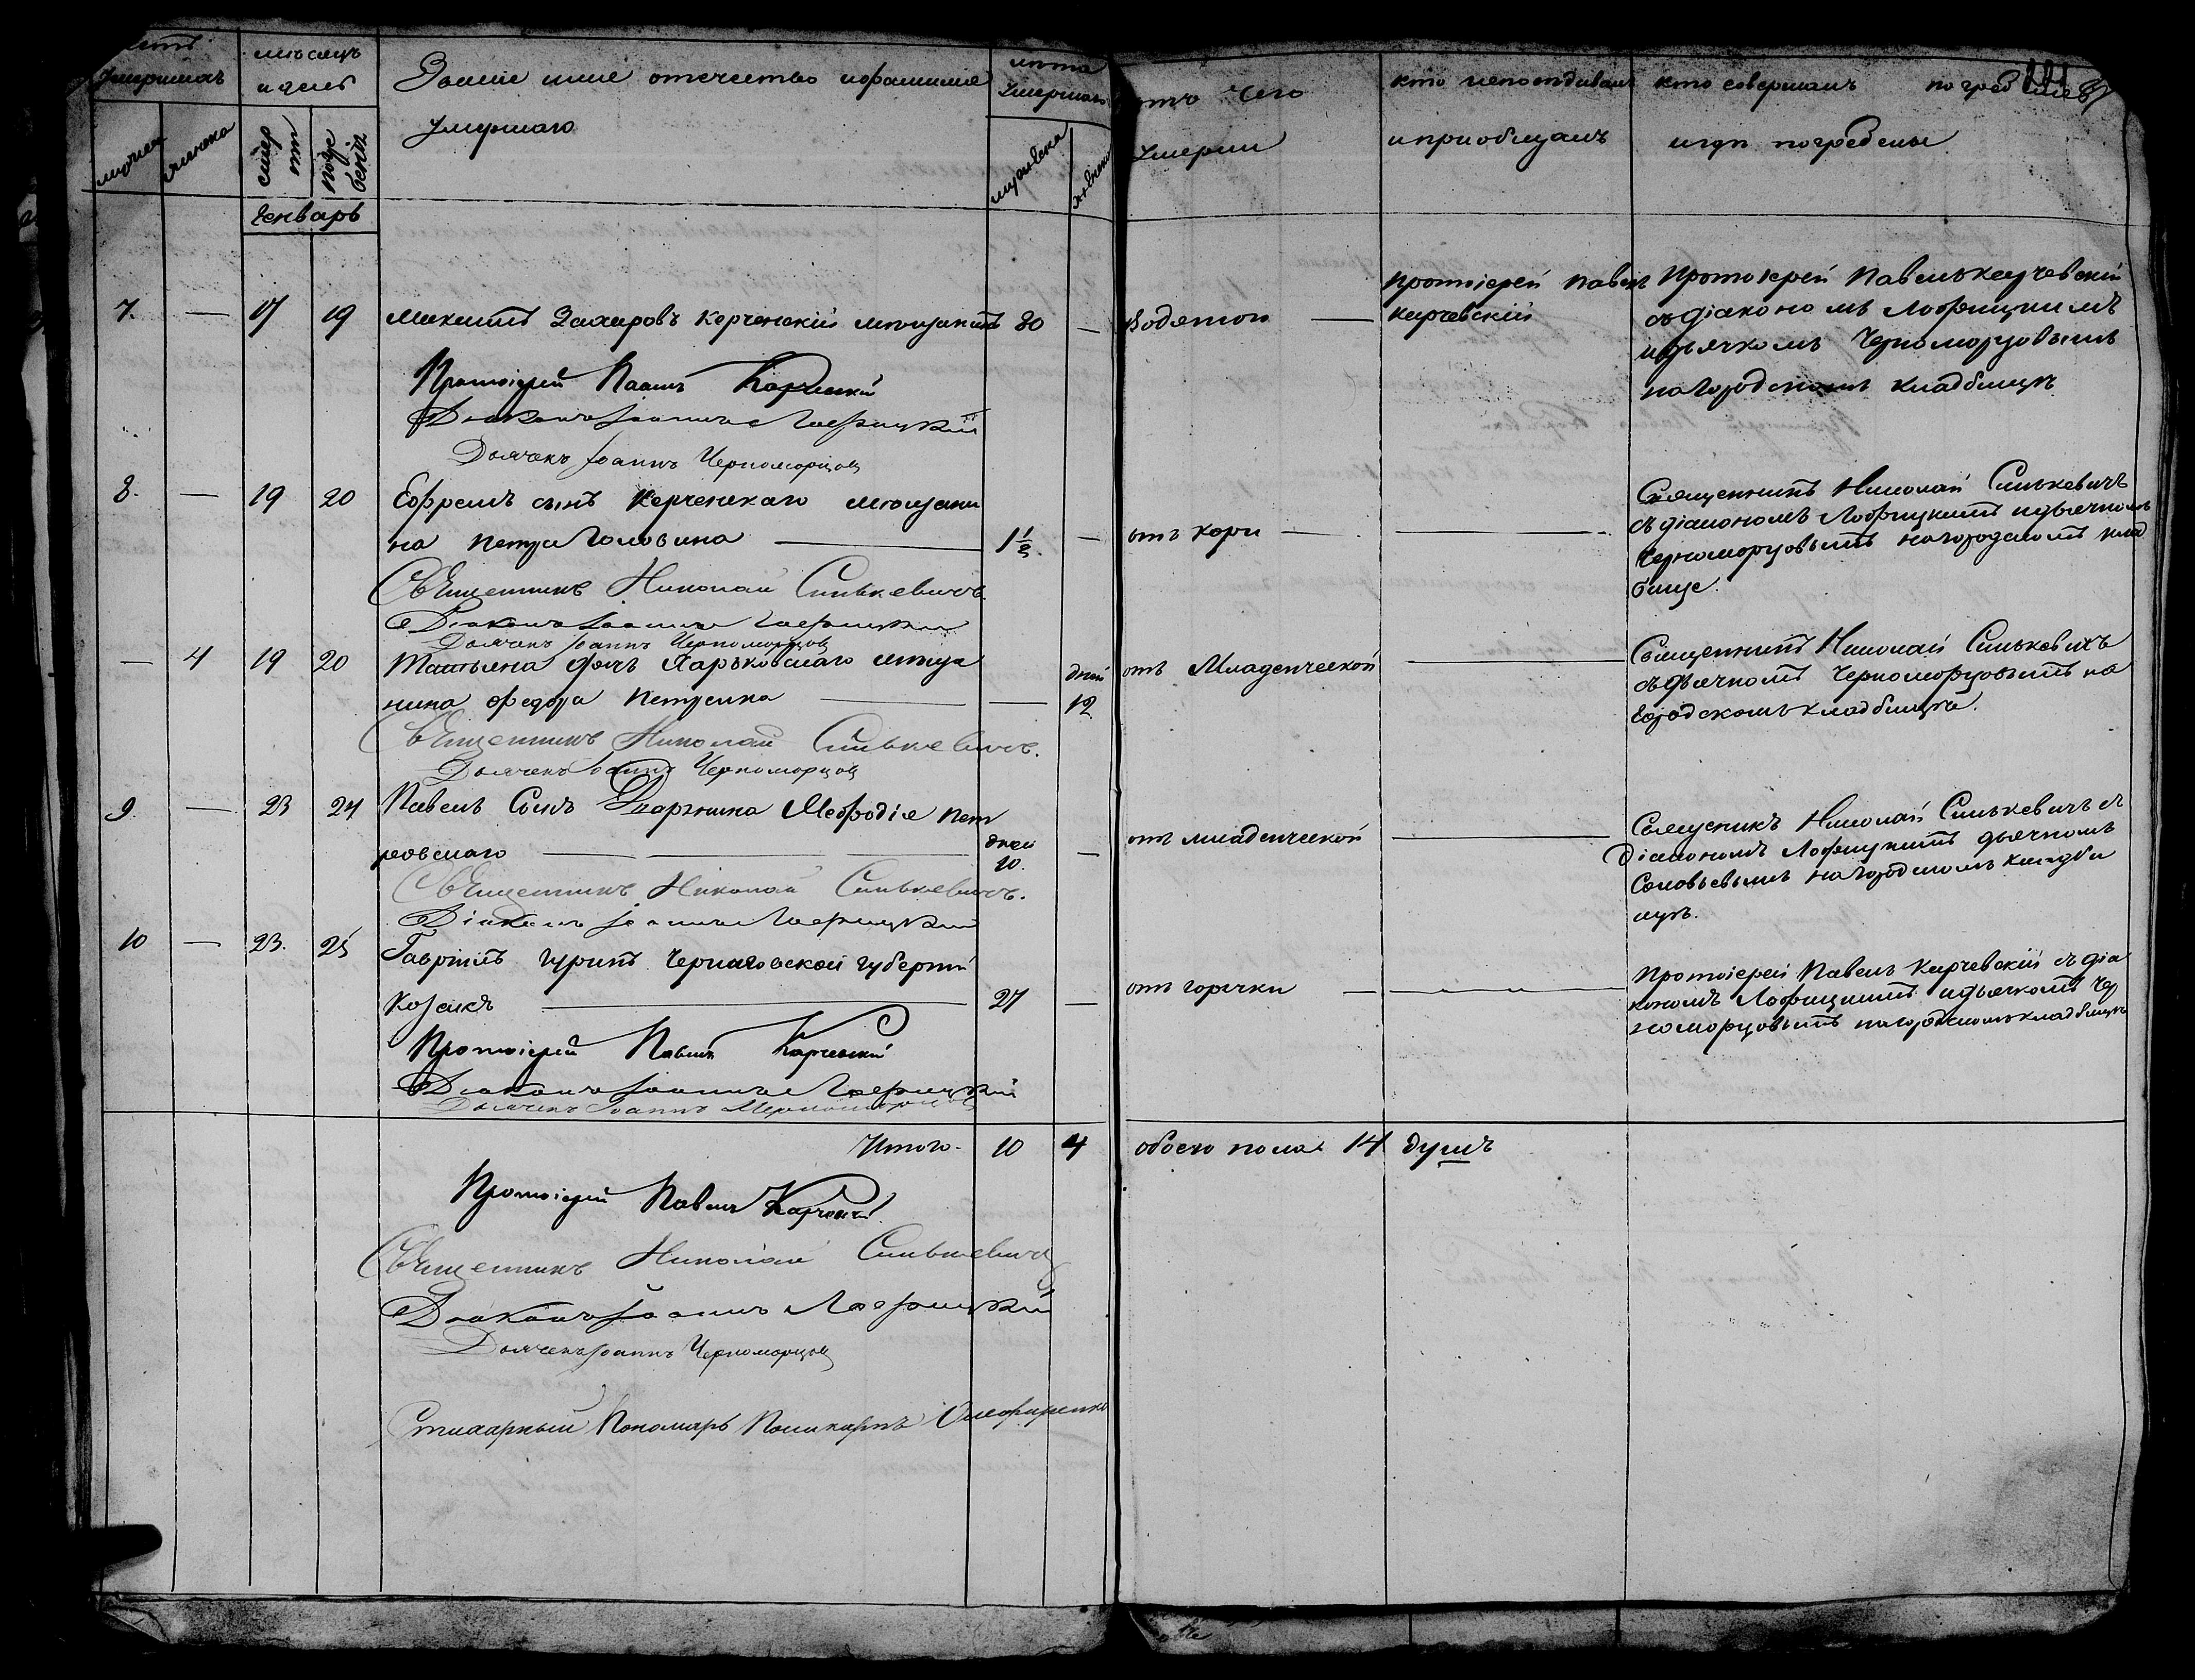 умершихъ
мѣсяцъ
и день
Званіе имя отечество и фамилія
умершаго
лѣта
умершаго
отъ чего
умерли
кто исповѣдывалъ
и приобщалъ
кто совершалъ погребеніе
и гдѣ погребены
мужеска
женска
смер
ти
погре
бенія
мужеска
женска
Генварь
7. — 17 19 Максимъ Захаровъ Керченскій мѣщанинъ 80 — Водяной —
Протоіерей Павелъ
Карчевскій
Протоіерей Павелъ Карчевскій
съ діакономъ Лофицкимъ
и дьячкомъ Черноморцовымъ
на городскомъ кладбищѣ
Протоіерей Павелъ Карчевскій
Діаконъ Іоаннъ Лофицкій
Дьячекъ Іоаннъ Черноморцовъ
8. — 19 20 Ефремъ сынъ Керченскаго мѣщани
на Петра Головина — 1½ — отъ кори — —
Священникъ Николай Синькевичъ
съ діакономъ Лофицкимъ и дьячкомъ
Черноморцовымъ на городскомъ клад
бище.
Священникъ Николай Синькевичъ.
Діаконъ Іоаннъ Лофицкій
Дьячекъ Іоаннъ Черноморцовъ
— 4 19 20 Татьяна дочь Харьковскаго мѣща
нина Федора Петренка — — дней 12 отъ Младенческой —
Священникъ Николай Синькевичъ
съ дьячкомъ Черноморцовымъ на
городскомъ кладбищѣ.
Священникъ Николай Синькевичъ.
Дьячекъ Іоаннъ Черноморцовъ
9. — 23 24 Павелъ Сынъ Дворянина Мефодія Пет
ровскаго — дней 10. — отъ младенческой —
Священикъ Николай Синькевичъ съ
Діакономъ Лофицкимъ дьячкомъ
Соловьевымъ на городскомъ кладби
щѣ.
Священникъ Николай Синькевичъ.
Діаконъ Іоаннъ Лофицкій
10 — 23. 25 Гавріилъ Гуринъ Черниговской губерніи
Козакъ — 27 — отъ горячки —
Протоіерей Павелъ Карчевскій съ діа
кономъ Лофицкимъ и дьячкомъ Чер
номорцовымъ на городскомъ кладбищѣ
Протоіерей Павелъ Карчевскій
Діаконъ Іоаннъ Лофицкій
Дьячекъ Іоаннъ Черноморцовъ
Итого. 10 4 обоего пола 14 душъ
Протоіерей Павелъ Карчевскій
Священникъ Николай Синькевичъ
Діаконъ Іоаннъ Лофицкій
Дьячекъ Іоаннъ Черноморцовъ
Стихарный Пономарь Поликарпъ